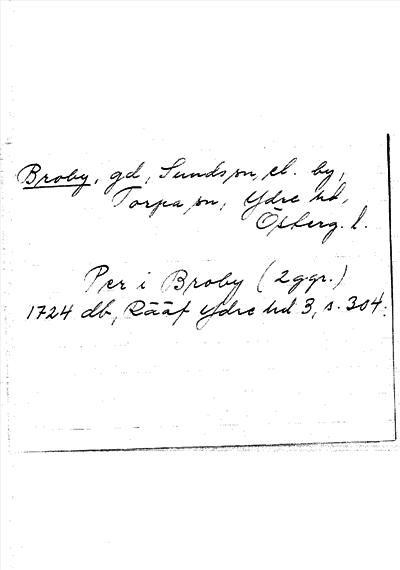 Broby, gd, Sunds sn, el. by,
Torpa sn, Ydre hd,
Österg. l.
Per i Broby (2 ggr.)
1724 db, Rääf Ydre hd 3, s. 304.